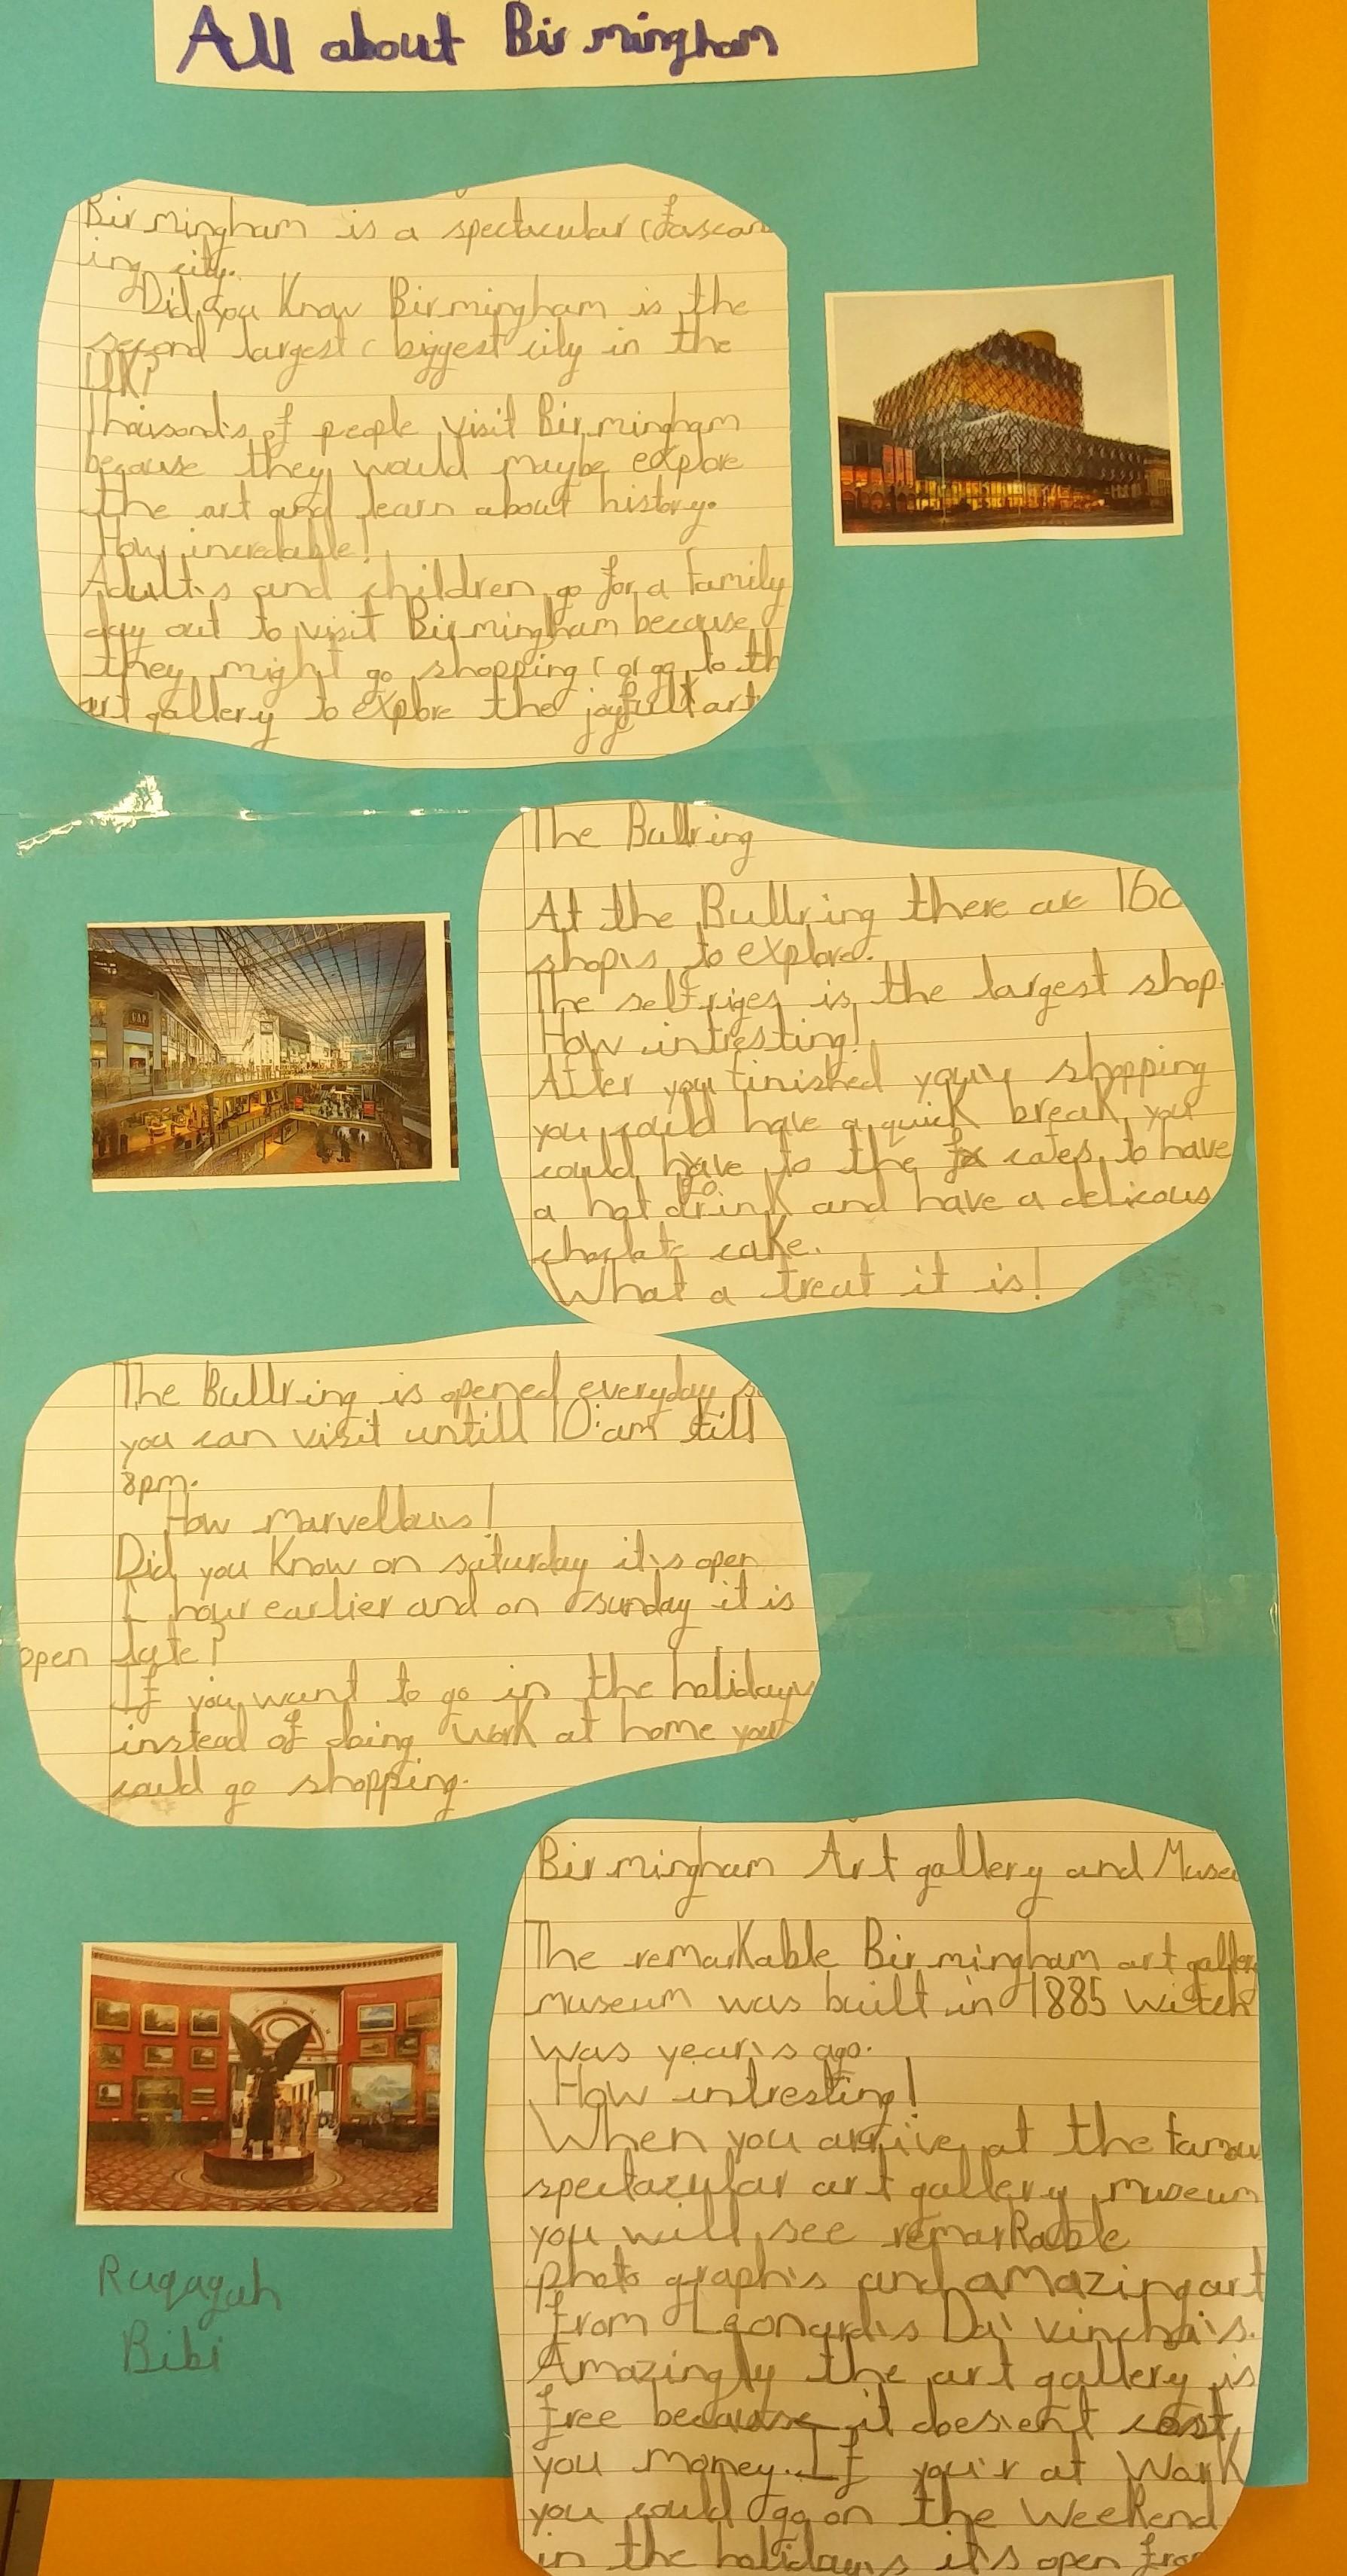 All about Birmingham
Birmingham is a spectacular (fascan
ing city.
Did you Know Birmingham is the
second largest ( biggest city in the
UK?
Thaisond's of people visit Birmingham
because they would maybe explore
the art and learn about history.
How incredable!
Adult's and children go for a family
day out to visit Birmingham because
they might go shopping ( or go to th
art gallery to explore the joyfull art
The Bullring
At the Bullring there are 160
shop's to explore.
The selfriges is the largest shop.
How intresting!
After you finished your shopping
you could have a quick break, you
could have to the cafes to have
go
a hot drink and have a delicous
choclate cake.
What a treat it is!
The Bullring is opened everyday s
you can visit untill 10:am till
8pm.
How marvellous!
Did you Know on saturday it's open
1 hour earlier and on sunday it is
open late?
If you want to go in the holidays
instead of doing work at home you
could go shopping.
GAP
Birmingham Art gallery and Museu
The remarkable Birmingham art gallery
museum was built in 1885 witch
was year's ago.
How intresting!
When you arrive at the famou
spectacular art gallery museum
you will see remarkable
photo graph's and amazing art
from Leonardis Da' vincha's.
Amazingly the art gallery is
free because it does'ent cost
you money. If you'r at Work
you could go on the Weekend
in the holiday's it's open from
Ruqayah
Bibi